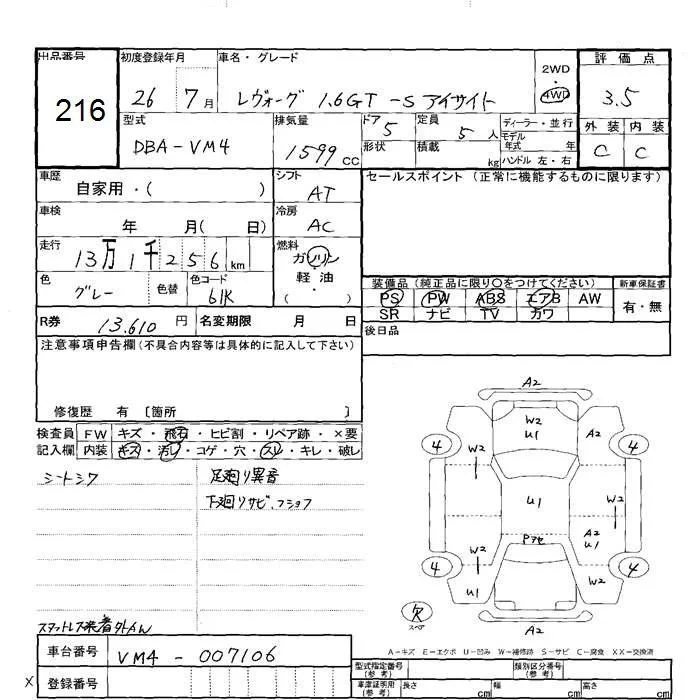 出品番号 初度登録年月 車名・グレード 2WD・4WD 評価点
216 26 7月 レヴォーグ 1.6GT-S アイサイト 3.5
型式 排気量 ドア 5 定員 5人 ディーラー・並行 外装 内装
DBA-VM4 1599cc 形状 積載 kg モデル年式 年 ハンドル 左・右 C C
車歴 自家用・( ) シフト AT セールスポイント (正常に機能するものに限ります)
車検 年 月( 日) 冷房 AC
走行 13万1千256km 燃料 ガソリン・軽油・( )
色 グレー 色替 色コード 61K
装備品 (純正品に限り○をつけてください) 新車保証書
PS PW ABS エアB AW 有・無
SR ナビ TV カワ
R券 13,610円 名変期限 月 日 後日品
注意事項申告欄(不具合内容等は具体的に記入して下さい)
修復歴 有 [箇所 ]
検査員 FW キズ・飛石・ヒビ割・リペア跡・×要
記入欄 内装 キズ・汚レ・コゲ・穴・スレ・キレ・破レ
シートシワ 足廻り異音
下廻りサビ、フショク
A2
W2 U1 A2
4 W2 4
U1 W2
A2 U1
Pアセ
W2
4 W2 4
U1
欠 スペア A2
スタットレス装着
A-キズ E-エクボ U-凹み W-補修跡 S-サビ C-腐食 XX-交換済
車台番号 VM4-007106
型式指定番号(参考) 類別区分番号(参考)
X 登録番号 車庫証明用(参考) 長さ cm 幅 cm 高さ cm